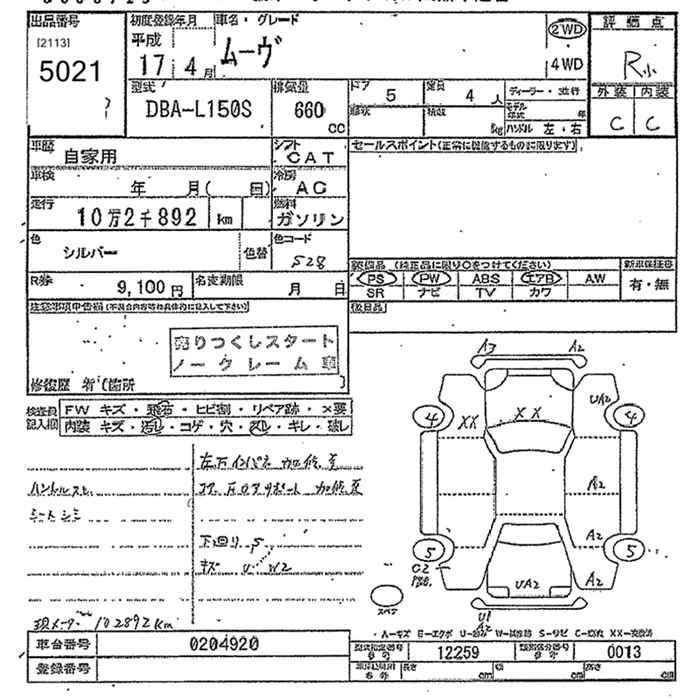 出品番号 初度登録年月 車名・グレード 2WD 評価点
[2113] 平成 ムーヴ R小
5021 17年4月 4WD
型式 排気量 ドア 5 定員 4人 ディーラー・並行 外装 内装
DBA-L150S 660cc 形状 積数 kg モデル年式 年 C C
ハンドル 左・右
車歴 自家用 シフト CAT セールスポイント(正常に機能するものに限ります)
車検 年 月( 回) 冷房 AC
走行 10万2千892 km 燃料 ガソリン
色 シルバー 色替 色コード 528
装備品 (純正品に限り○をつけてください) 新車保証書
R券 9,100円 名変期限 月 日 PS PW ABS エアB AW 有・無
SR ナビ TV カワ
注意事項申告欄(不具合内容等は具体的に記入して下さい) 後日品
売りつくしスタート
ノークレーム車
修復歴 有(箇所 )
検査員 FW キズ・飛石・ヒビ割・リペア跡・×要
記入欄 内装 キズ・汚れ・コゲ・穴・スレ・キレ・破レ
左右インパネ 加修歴
ハンドルスレ コアロアサポート 加修歴
シートシミ
下回り S
キズ U W2
現メーター 102892km
A3 A2
4 XX XX UA2 4
A2
A2
5 C2 UA2 A2 5
スペア
U1
A2
A-キズ E-エクボ U-凹み W-補修跡 S-サビ C-腐食 XX-交換済
車台番号 0204920 型式指定番号 12259 類別区分番号 0013
登録番号 長さ cm 幅 cm 高さ cm